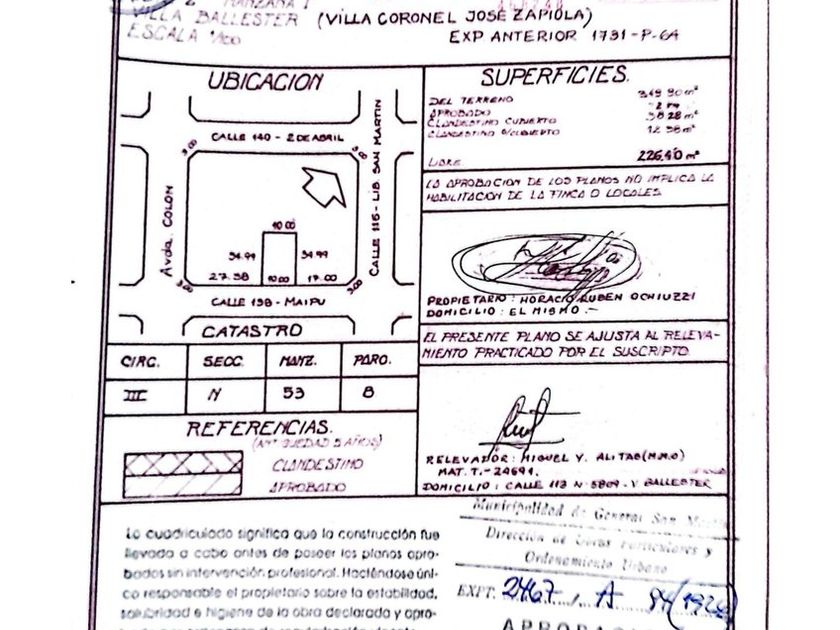 MANZANA 1
VILLA BALLESTER (VILLA CORONEL JOSÉ ZAPIOLA)
ESCALA 1/100
EXP ANTERIOR 1731-P-64
UBICACION
CALLE 140 - 2 DE ABRIL
3.00
3.00
Avda. COLON
CALLE 116 - LIB. SAN MARTIN
10.00
34.99
34.99
27.38
10.00
17.00
3.00
3.00
CALLE 138 - MAIPU
CATASTRO
CIRC.
SECC.
MANZ.
PARC.
III
N
53
8
REFERENCIAS.
(ANTIGUEDAD 5 AÑOS)
CLANDESTINO
APROBADO
SUPERFICIES.
DEL TERRENO 349.90 m²
APROBADO
CLANDESTINO CUBIERTO 38.28 m²
CLANDESTINO S/CUBIERTO 12.58 m²
LIBRE. 226.40 m²
LA APROBACION DE LOS PLANOS NO IMPLICA LA
HABILITACION DE LA FINCA O LOCALES.
PROPIETARIO: HORACIO RUBEN OCHIUZZI
DOMICILIO: EL MISMO.-
EL PRESENTE PLANO SE AJUSTA AL RELEVA-
MIENTO PRACTICADO POR EL SUSCRIPTO.
RELEVADOR: MIGUEL Y. ALITAO (M.M.O)
MAT. T.-24691.
DOMICILIO: CALLE 113 N-5809-V BALLESTER
Lo cuadriculado significa que la construcción fue
llevada a cabo antes de poseer los planos apro-
bados sin intervención profesional. Haciéndose úni-
co responsable el propietario sobre la estabilidad,
salubridad e higiene de la obra declarada y apro-
Municipalidad de General San Martín
Dirección de Obras Particulares y
Ordenamiento Urbano
EXPT. 2467, A 94
APROBADO